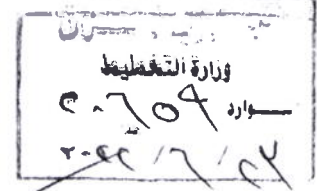 وزارة التخطيط
وارد ٢٠٦٥٩
٢٠٢٢/٦/٢٧